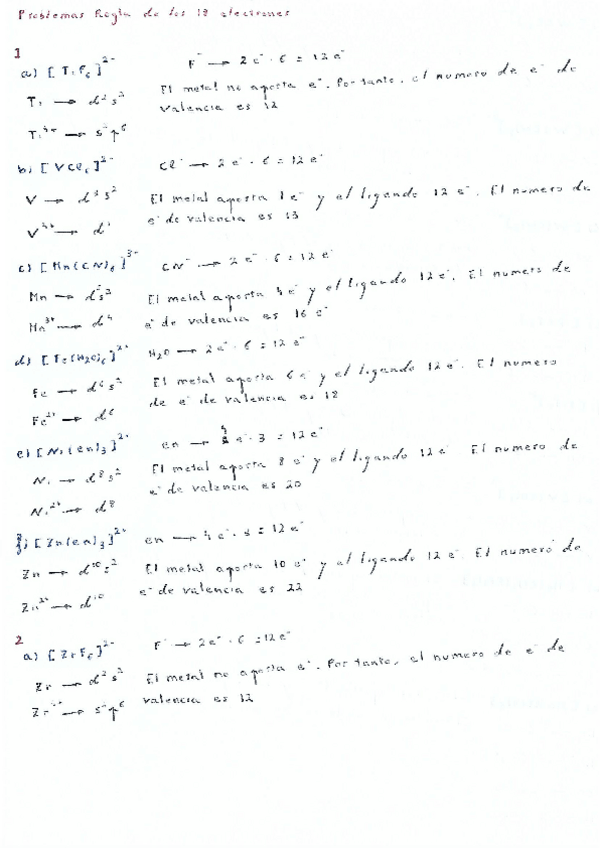 Problemas Regla de los 18 electrones
1
a) [TiF₆]²⁻ F⁻ → 2e⁻ · 6 = 12e⁻
Ti → d²s² El metal no aporta e⁻. Por tanto, el numero de e⁻ de
valencia es 12
Ti⁴⁺ → s²p⁶
b) [VCl₆]²⁻ Cl⁻ → 2e⁻ · 6 = 12e⁻
V → d³s² El metal aporta 1e⁻ y el ligando 12 e⁻. El numero de
V⁴⁺ → d¹ e⁻ de valencia es 13
c) [Mn(CN)₆]³⁻ CN⁻ → 2e⁻ · 6 = 12e⁻
Mn → d⁵s² El metal aporta 4e⁻ y el ligando 12e⁻. El numero de
Mn³⁺ → d⁴ e⁻ de valencia es 16 e⁻
d) [Fe(H₂O)₆]²⁺ H₂O → 2e⁻ · 6 = 12e⁻
Fe → d⁶s² El metal aporta 6e⁻ y el ligando 12e⁻. El numero
Fe²⁺ → d⁶ de e⁻ de valencia es 18
e) [Ni(en)₃]²⁺ en → 4e⁻ · 3 = 12e⁻
Ni → d⁸s² El metal aporta 8e⁻ y el ligando 12e⁻. El numero de
Ni²⁺ → d⁸ e⁻ de valencia es 20
f) [Zn(en)₃]²⁺ en → 4e⁻ · 3 = 12e⁻
Zn → d¹⁰s² El metal aporta 10 e⁻ y el ligando 12 e⁻. El numero de
Zn²⁺ → d¹⁰ e⁻ de valencia es 22
2
a) [ZrF₆]²⁻ F⁻ → 2e⁻ · 6 = 12e⁻
Zr → d²s² El metal no aporta e⁻. Por tanto, el numero de e⁻ de
Zr⁴⁺ → s²p⁶ valencia es 12